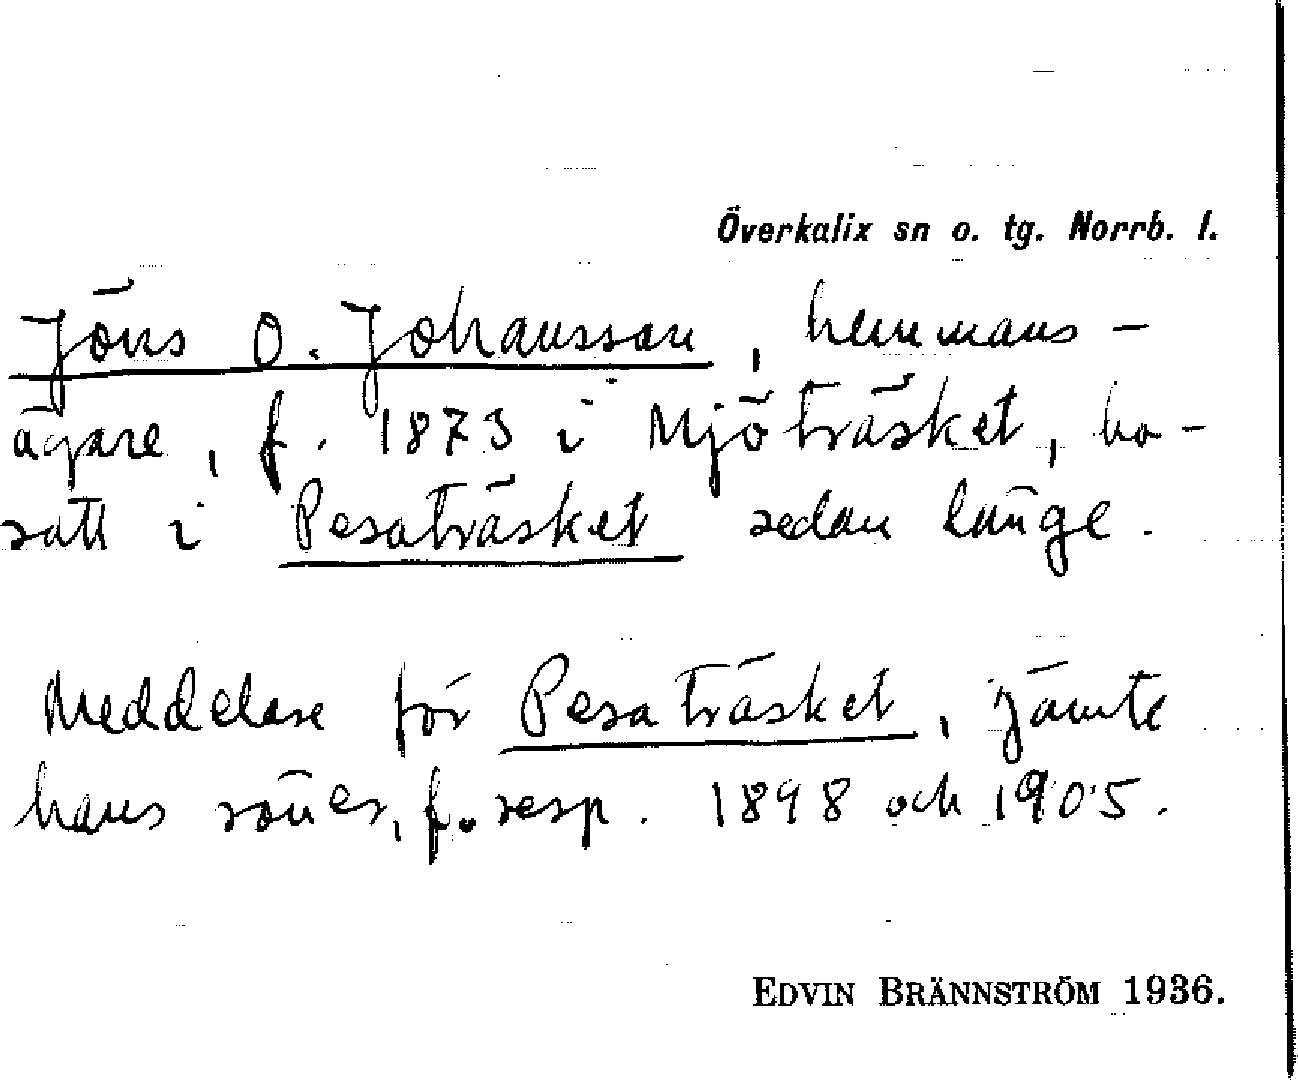 Överkalix sn o. tg. Norrb. l.
Jöns O. Johansson, hemmans-
ägare, f. 1873 i Mjöträsket, bo-
satt i Pesaträsket sedan länge.
Meddelare för Pesaträsket, jämte
hans söner, f. resp. 1898 och 1905.
EDVIN BRÄNNSTRÖM 1936.